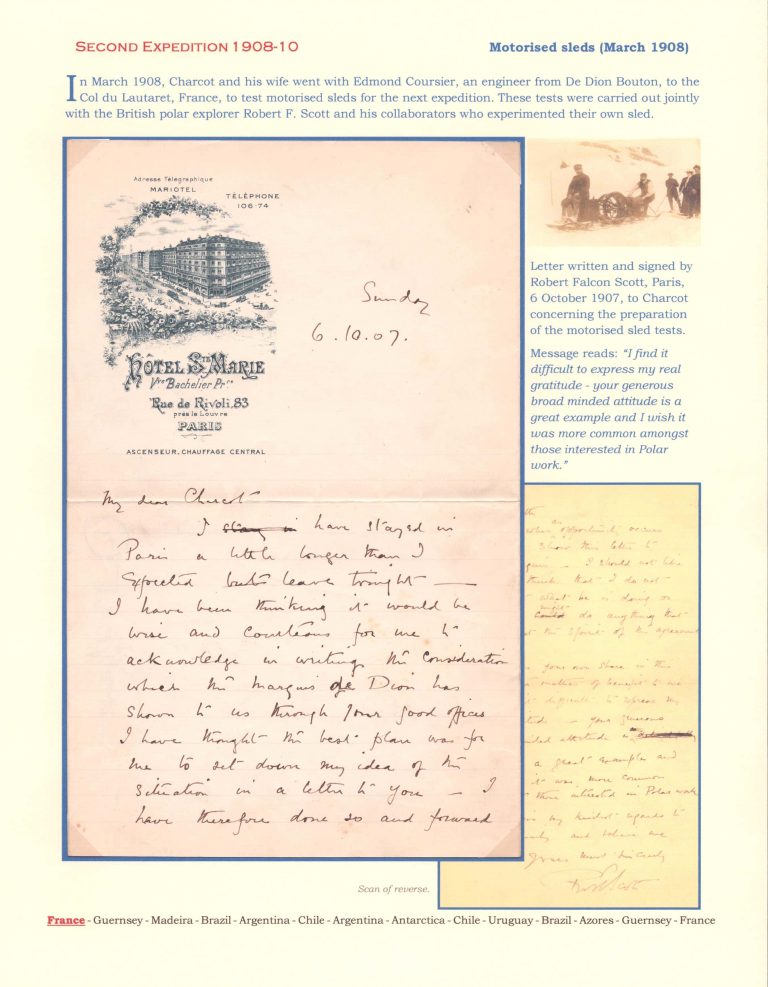 SECOND EXPEDITION 1908-10
Motorised sleds (March 1908)
In March 1908, Charcot and his wife went with Edmond Coursier, an engineer from De Dion Bouton, to the
Col du Lautaret, France, to test motorised sleds for the next expedition. These tests were carried out jointly
with the British polar explorer Robert F. Scott and his collaborators who experimented their own sled.
Adresse Télégraphique
MARIOTEL
TÉLÉPHONE
106-74
HÔTEL STE MARIE
Vve Bachelier Prre
Rue de Rivoli. 83
près le Louvre
PARIS
ASCENSEUR, CHAUFFAGE CENTRAL
Sunday
6.10.07.
My dear Charcot
I stay in have stayed in
Paris a little longer than I
expected but leave tonight —
I have been thinking it would be
wise and courteous for me to
acknowledge in writing the consideration
which the Marquis de Dion has
shown to us through your good offices
I have thought the best plan was for
me to set down my idea of the
situation in a letter to you — I
have therefore done so and forward
Letter written and signed by
Robert Falcon Scott, Paris,
6 October 1907, to Charcot
concerning the preparation
of the motorised sled tests.
Message reads: “I find it
difficult to express my real
gratitude - your generous
broad minded attitude is a
great example and I wish it
was more common amongst
those interested in Polar
work.”
opportunity occurs
show this letter to
I should not like
think that I do not
what he is doing or
could do anything that
the spirit of the agreement
your own share in this
matter of benefit to me
difficult to express my
your generous
attitude is
a great example and
it was more common
those interested in Polar work
my kindest regards to
and believe me
yours most sincerely
R Scott
Scan of reverse.
France - Guernsey - Madeira - Brazil - Argentina - Chile - Argentina - Antarctica - Chile - Uruguay - Brazil - Azores - Guernsey - France